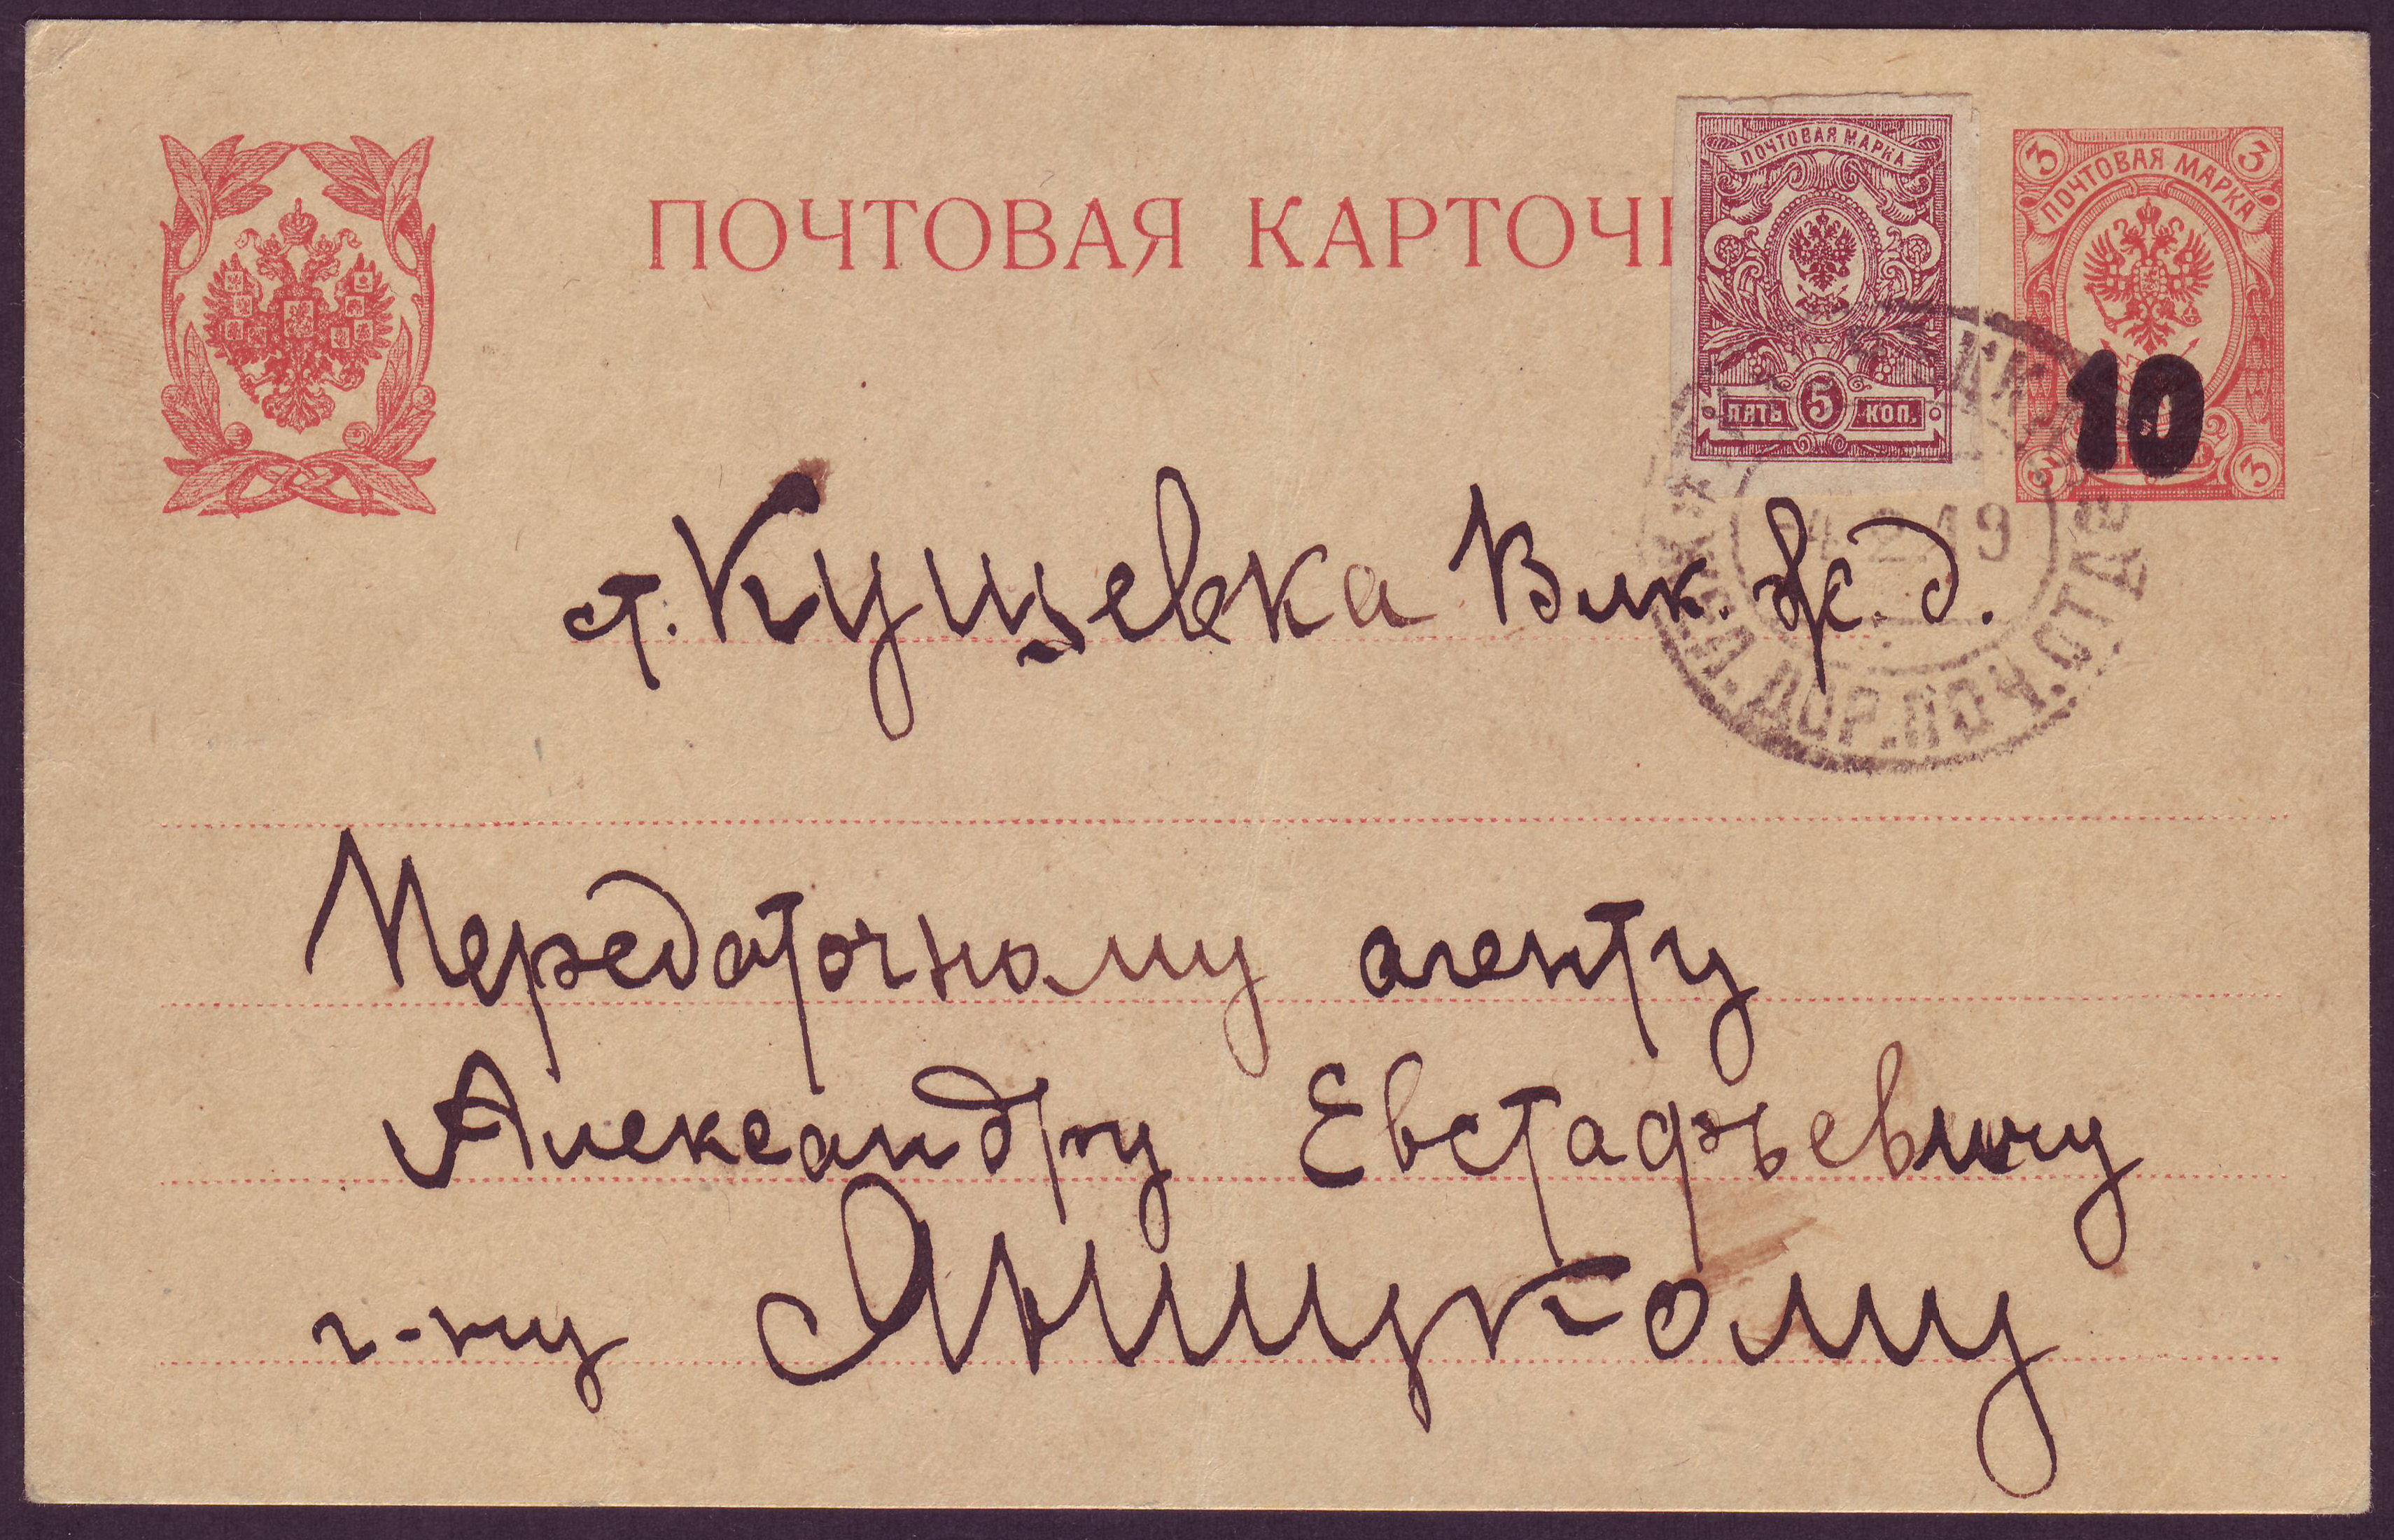 ПОЧТОВАЯ КАРТОЧ
ПОЧТОВАЯ МАРКА
ПЯТЬ 5 КОП.
3 3
ПОЧТОВАЯ МАРКА
10
3 3
4.2.19
ДОР.ПОЧ.ОТД
ст. Кущевка Влк. ж. д.
Передаточному агенту
Александру Евстафьевичу
г-ну Яницкому